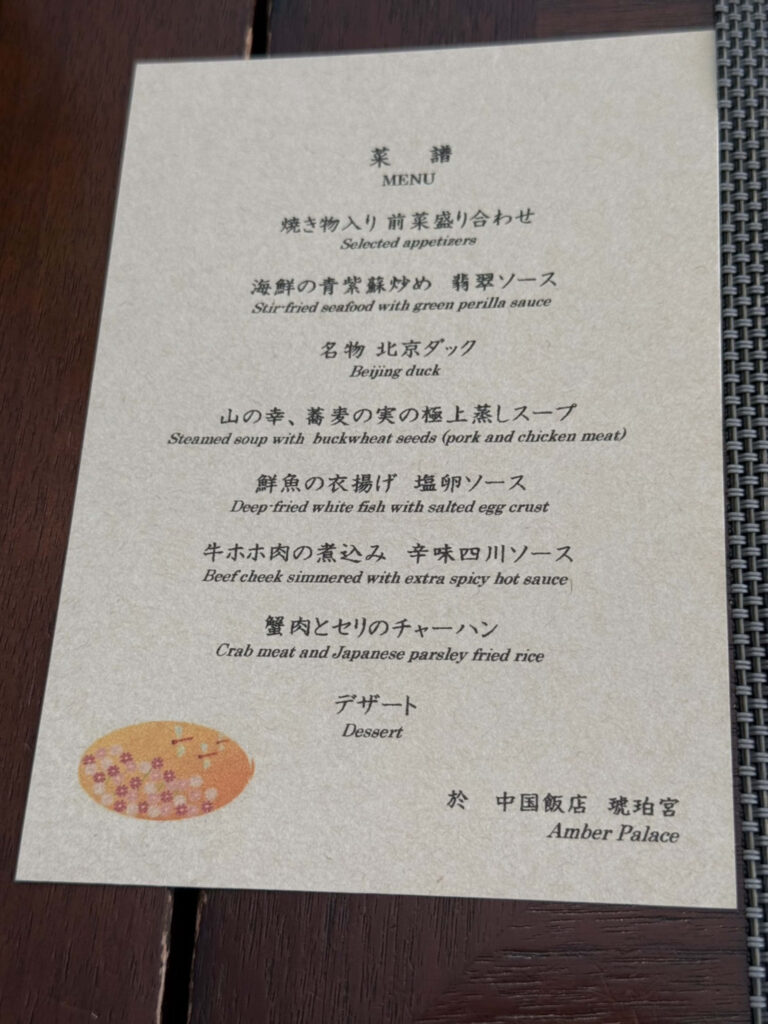 菜 譜
MENU
焼き物入り 前菜盛り合わせ
Selected appetizers
海鮮の青紫蘇炒め 翡翠ソース
Stir-fried seafood with green perilla sauce
名物 北京ダック
Beijing duck
山の幸、蕎麦の実の極上蒸しスープ
Steamed soup with buckwheat seeds (pork and chicken meat)
鮮魚の衣揚げ 塩卵ソース
Deep-fried white fish with salted egg crust
牛ホホ肉の煮込み 辛味四川ソース
Beef cheek simmered with extra spicy hot sauce
蟹肉とセリのチャーハン
Crab meat and Japanese parsley fried rice
デザート
Dessert
於 中国飯店 琥珀宮
Amber Palace